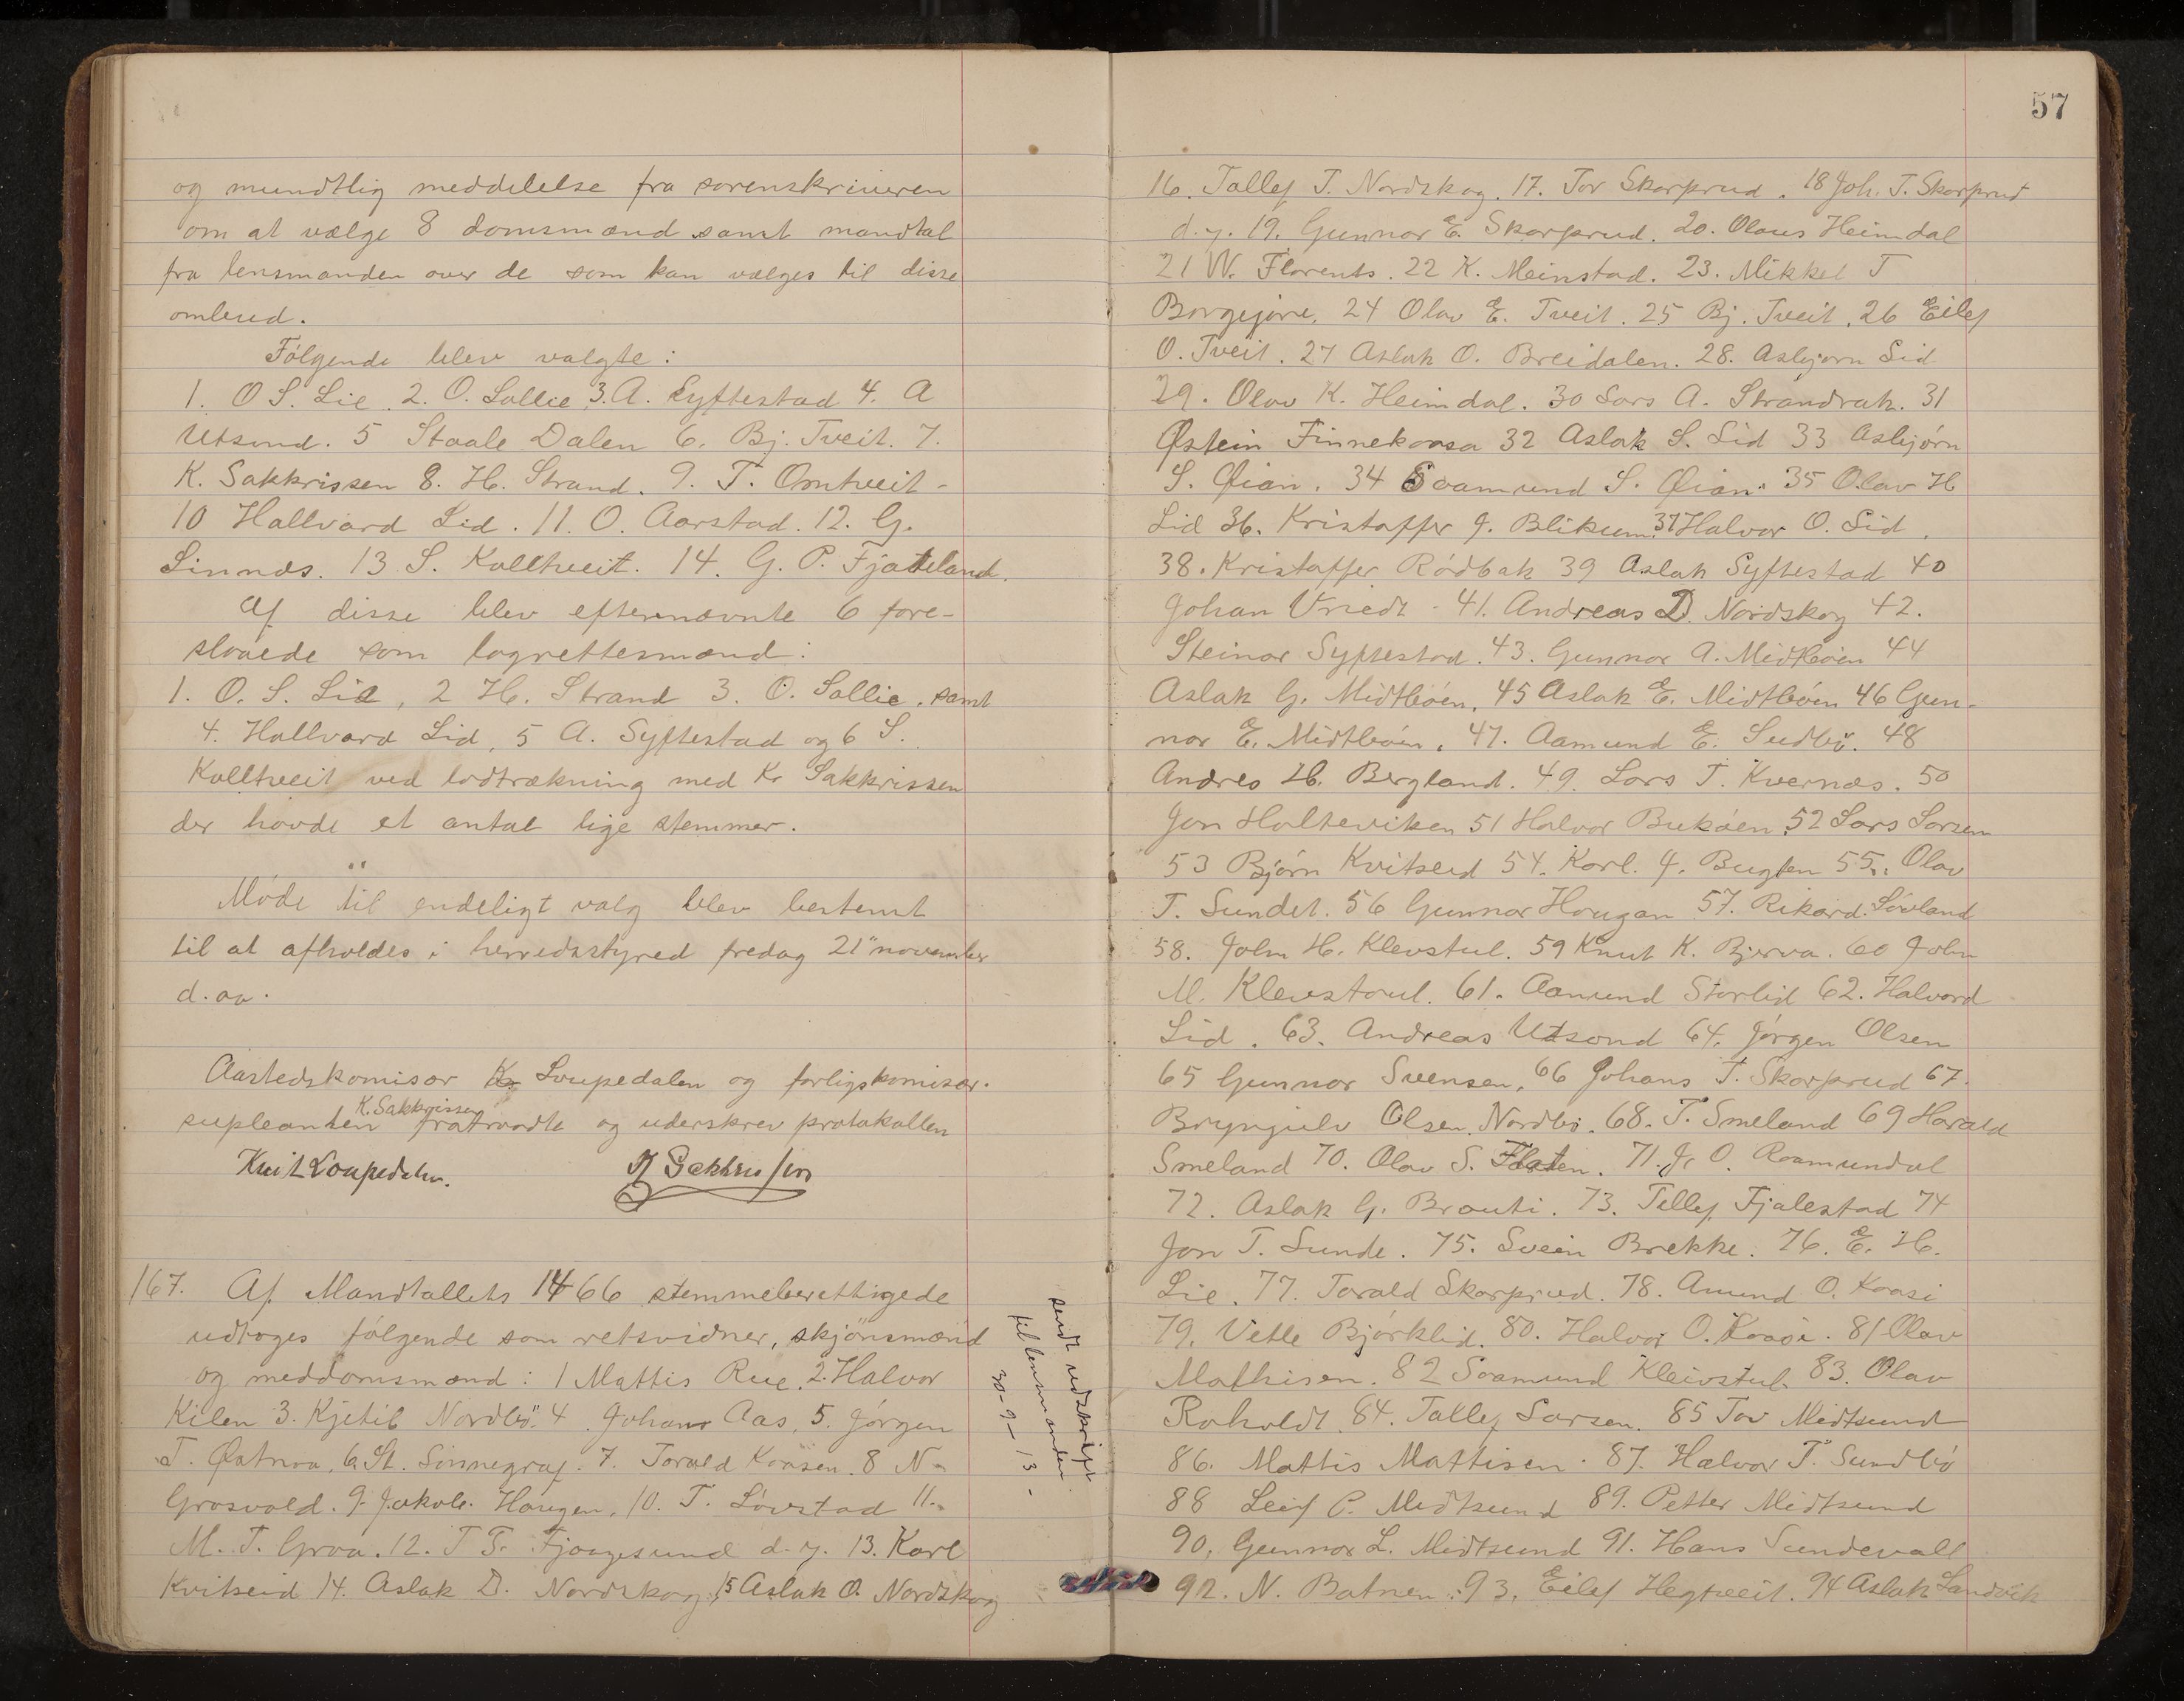 og mundtlig meddelelse fra sorenskriveren
om at vælge 8 domsmænd samt mandtal
fra lensmanden over de som kan vælges til disse
ombud.
Følgende blev valgte:
1. O S. Lie. 2. O. Lallie 3. A. Syftestad 4. A
Utsund. 5 Staale Dalen 6. Bj. Tveit. 7.
K. Sakkrissen 8. H. Strand. 9. T. Omtveit -
10 Hallvard Lid. 11. O. Aarstad. 12. G.
Linnæs. 13 S. Kolltveit. 14. G. P. Fjateland.
Af disse blev efternævnte 6 fore-
slaaede som lagrettesmænd:
1. O. S. Lie, 2 H. Strand 3. O. Lallie, samt
4. Hallvard Lid, 5 A. Syftestad og 6 S.
Kolltveit ved lodtrækning med K. Sakkrissen
der havde et antal lige stemmer.
Møde til endeligt valg blev bestemt
til at afholdes i herredsstyred fredag 21" november
d. aa.
Aastedskomisær K. Loupedalen og forligskomisær-
supleanten K. Sakkrissen fratraadte og uderskrev protokollen
Knit Loupedalen. K Sakkrissen
167. Af Mandtallets 1466 stemmeberettigede
udtoges følgende som retsvidner, skjönsmænd
og meddomsmænd: 1 Mattis Rue, 2. Halvor
Kilen 3. Kjetil Nordbö. 4. Johans Aas, 5. Jørgen
T. Østmoa, 6. St. Sinnegraf. 7. Torald Kaasen. 8 N.
Grasvold. 9. Jakob. Haugen, 10. T. Lövstad 11.
M. T. Groa. 12. T T. Fjaagesund d. y. 13. Karl
Kvitseid 14. Aslak D. Nordskog, 15 Aslak O. Nordskog
sendt udskrift
til lensmanden
30-9-13-
57
16. Tallef T. Nordskog. 17. Tov Skarprud. 18 Joh. T. Skarprud
d. y. 19. Gunnar E. Skarprud. 20. Olaus Heimdal
21 W. Florents. 22 K. Meinstad. 23. Mikkel T
Borgejore, 24 Olav E. Tveit. 25 Bj. Tveit. 26 Eilef
O. Tveit. 27 Aslak O. Breidalen. 28. Asbjørn Lid
29. Olav K. Heimdal. 30 Lars A. Strandrak. 31
Østein Finnekaasa 32 Aslak S. Lid 33 Asbjörn
S. Øian. 34 Soamund S. Øian. 35 Olav H
Lid 36. Kristoffer J. Blikum. 37 Halvor O. Lid.
38. Kristoffer Rödbak 39 Aslak Syftestad 40
Johan Vriedt. 41. Andreas D. Nordskog 42.
Steinar Syftestad. 43. Gunnar A. Midtböen 44
Aslak G. Midtböen, 45 Aslak E. Midtböen 46 Gun-
nar E. Midtböen, 47. Aamund E. Sudbö. 48
Andres H. Bergland. 49. Lars T. Kvernæs. 50
Jon Holteviken 51 Halvor Buköen. 52 Lars Larsen
53 Bjørn Kvitseid 54. Karl. J. Bugten 55. Olav
T. Sundet. 56 Gunnar Haugan 57. Rikard Lövland
58. John H. Klevstul. 59 Knut K. Bjerva. 60 John
M. Klevstoul. 61. Aamund Storlid 62. Halvord
Lid. 63. Andreas Utsond 64. Jørgen Olsen
65 Gunnar Svensen, 66 Johans T. Skarprud 67.
Bryngjulv Olsen Nordbö. 68. T. Smeland 69 Harald
Smeland 70. Olav S. Flaten. 71. J. O. Roamundal
72. Aslak G. Brauti. 73. Tellef Fjalestad 74
Jon T. Sunde. 75. Svein Brekke. 76. E. H.
Lie. 77. Torald Skarprud. 78. Amund O. Kaasi
79. Vetle Bjørklid. 80. Halvor O. Kaasi. 81 Olav
Mathisen. 82 Soamund Kleivstul. 83. Olav
Roholdt. 84. Tallef Larsen. 85 Tov Midtsund
86. Mattis Mattisen. 87. Halvor T. Sundbö
88 Leif P. Midtsund 89. Petter Midtsund
90, Gunnar L. Midtsund 91. Hans Sundevall
92. N. Batnen. 93. Eilef Hegtveit. 94 Aslak Landvik